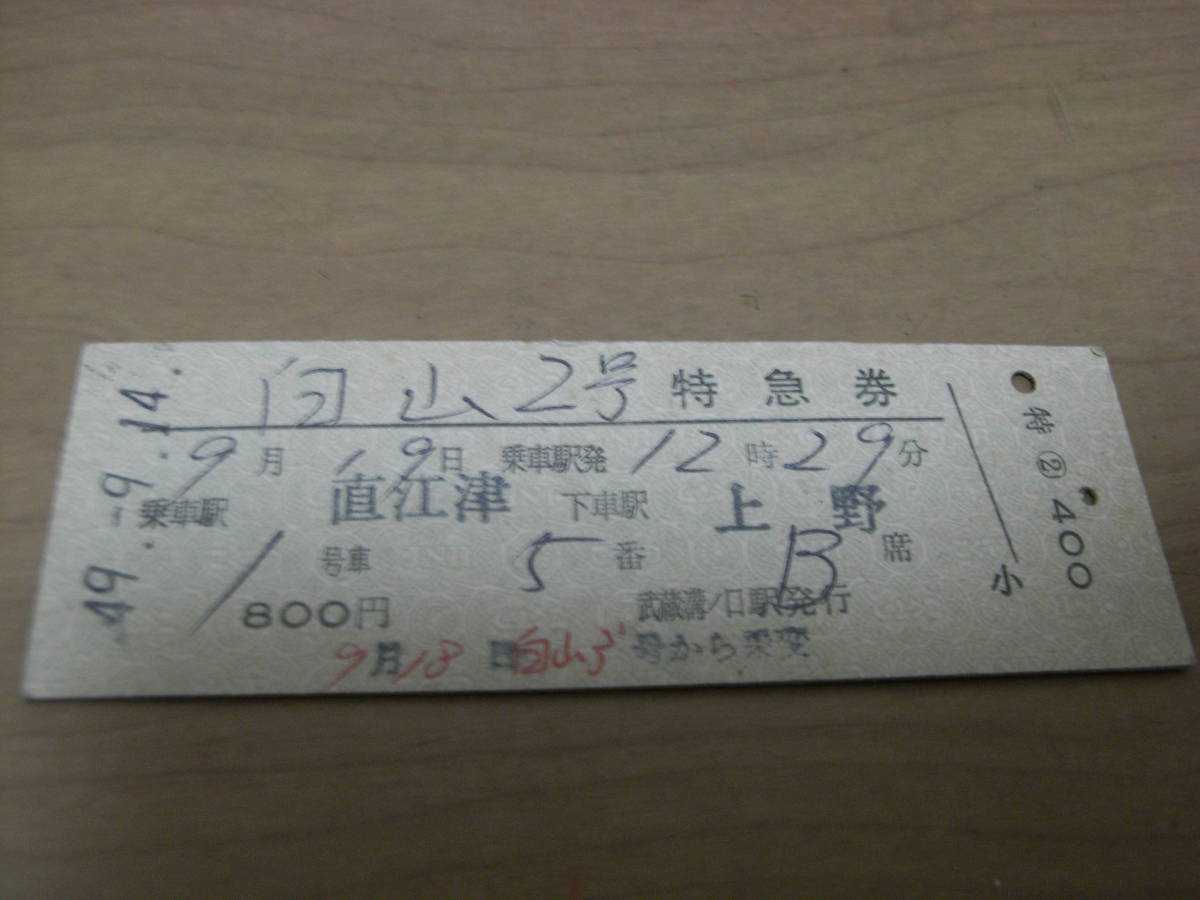 49.-9.14.
白山2号 特急券
9月19日 乗車駅発12時29分
乗車駅 直江津 下車駅 上野
1号車 5番 B席
800円 武蔵溝ノ口駅発行
9月18日白山3号から乗変
小
特②400